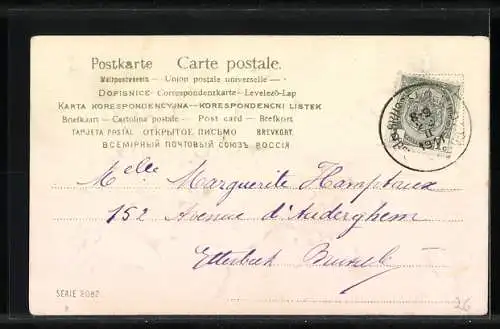 Postkarte Carte postale.
Weltpostverein — Union postale universelle —
Dopisnice - Correspondenzkarte - Levelező-Lap
Karta korespondencyjna — Korespondenční lístek
Briefkaart - Cartolina postale - Post card - Brefkort
Tarjeta postal ОТКРЫТОЕ ПИСЬМО Brevkort
ВСЕМІРНЫЙ ПОЧТОВЫЙ СОЮЗЪ РОССІЯ
Melle Marguerite Hamptaux
152 Avenue d'Auderghem
Etterbeek Bruxelles
SERIE 2082
26